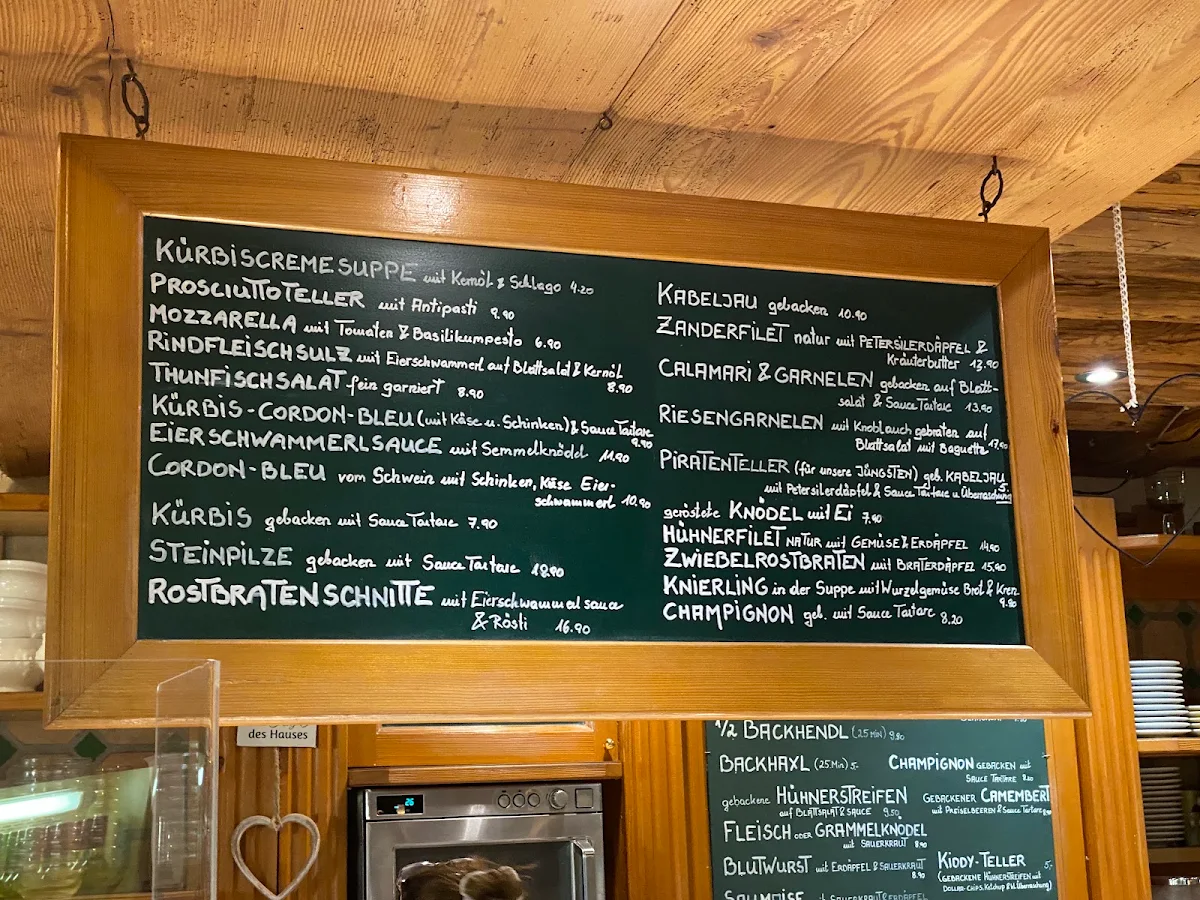 KÜRBISCREMESUPPE mit Kernöl & Schlago 4.20
PROSCIUTTOTELLER mit Antipasti 9.90
MOZZARELLA mit Tomaten & Basilikumpesto 6.90
RINDFLEISCHSULZ mit Eierschwammerl auf Blattsalat & Kernöl
8.90
THUNFISCHSALAT fein garniert 8.90
KÜRBIS-CORDON-BLEU (mit Käse u. Schinken) & Sauce Tartare
9.90
EIERSCHWAMMERLSAUCE mit Semmelknödel 11.90
CORDON-BLEU vom Schwein mit Schinken, Käse Eier-
schwammerl 10.90
KÜRBIS gebacken mit Sauce Tartare 7.90
STEINPILZE gebacken mit Sauce Tartare
ROSTBRATENSCHNITTE mit Eierschwammerlsauce
& Rösti 16.90
KABELJAU gebacken 10.90
ZANDERFILET natur mit PETERSILERDÄPFEL &
Kräuterbutter 13.90
CALAMARI & GARNELEN gebacken auf Blatt-
salat & Sauce Tartare 13.90
RIESENGARNELEN mit Knoblauch gebraten auf
Blattsalat mit Baguette 17.90
PIRATENTELLER (für unsere JÜNGSTEN) geb. KABELJAU
mit Petersilerdäpfel & Sauce Tartare u. Überraschung 5.-
geröstete KNÖDEL mit Ei 7.90
HÜHNERFILET NATUR mit GEMÜSE & ERDÄPFEL 14.90
ZWIEBELROSTBRATEN mit BRATERDÄPFEL 15.90
KNIERLING in der Suppe mit Wurzelgemüse Brot & Kren
9.90
CHAMPIGNON geb. mit Sauce Tartare 8.20
des Hauses
26
1/2 BACKHENDL (25 MIN) 9.80
BACKHAXL (25 Min) 5.-
gebackene HÜHNERSTREIFEN
auf BLATTSALAT & SAUCE 9.50
FLEISCH ODER GRAMMELKNÖDEL
mit SAUERKRAUT 8.90
BLUTWURST mit ERDÄPFEL & SAUERKRAUT
8.90
SAUMAISE mit SAUERKRAUT & ERDÄPFEL
CHAMPIGNON GEBACKEN mit
SAUCE TARTARE 8.20
GEBACKENER CAMEMBERT
mit PREISELBEEREN & Sauce Tartare
KIDDY-TELLER 5.-
(GEBACKENE HÜHNERSTREIFEN mit
DOLLAR-CHIPS, Ketchup & kl. Überraschung)